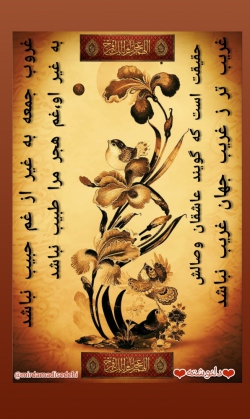 اللهم عجل لولیک الفرج
غروب جمعه به غیر از غم حبیب نباشد
به غیر او،غم هجر مرا طبیب نباشد
حقیقت است که گویند عاشقان وصالش
غریب تر ز غریب جهان غریب نباشد
اللهم عجل لولیک الفرج
❤دلنوشته❤
@mirdamadisedehi